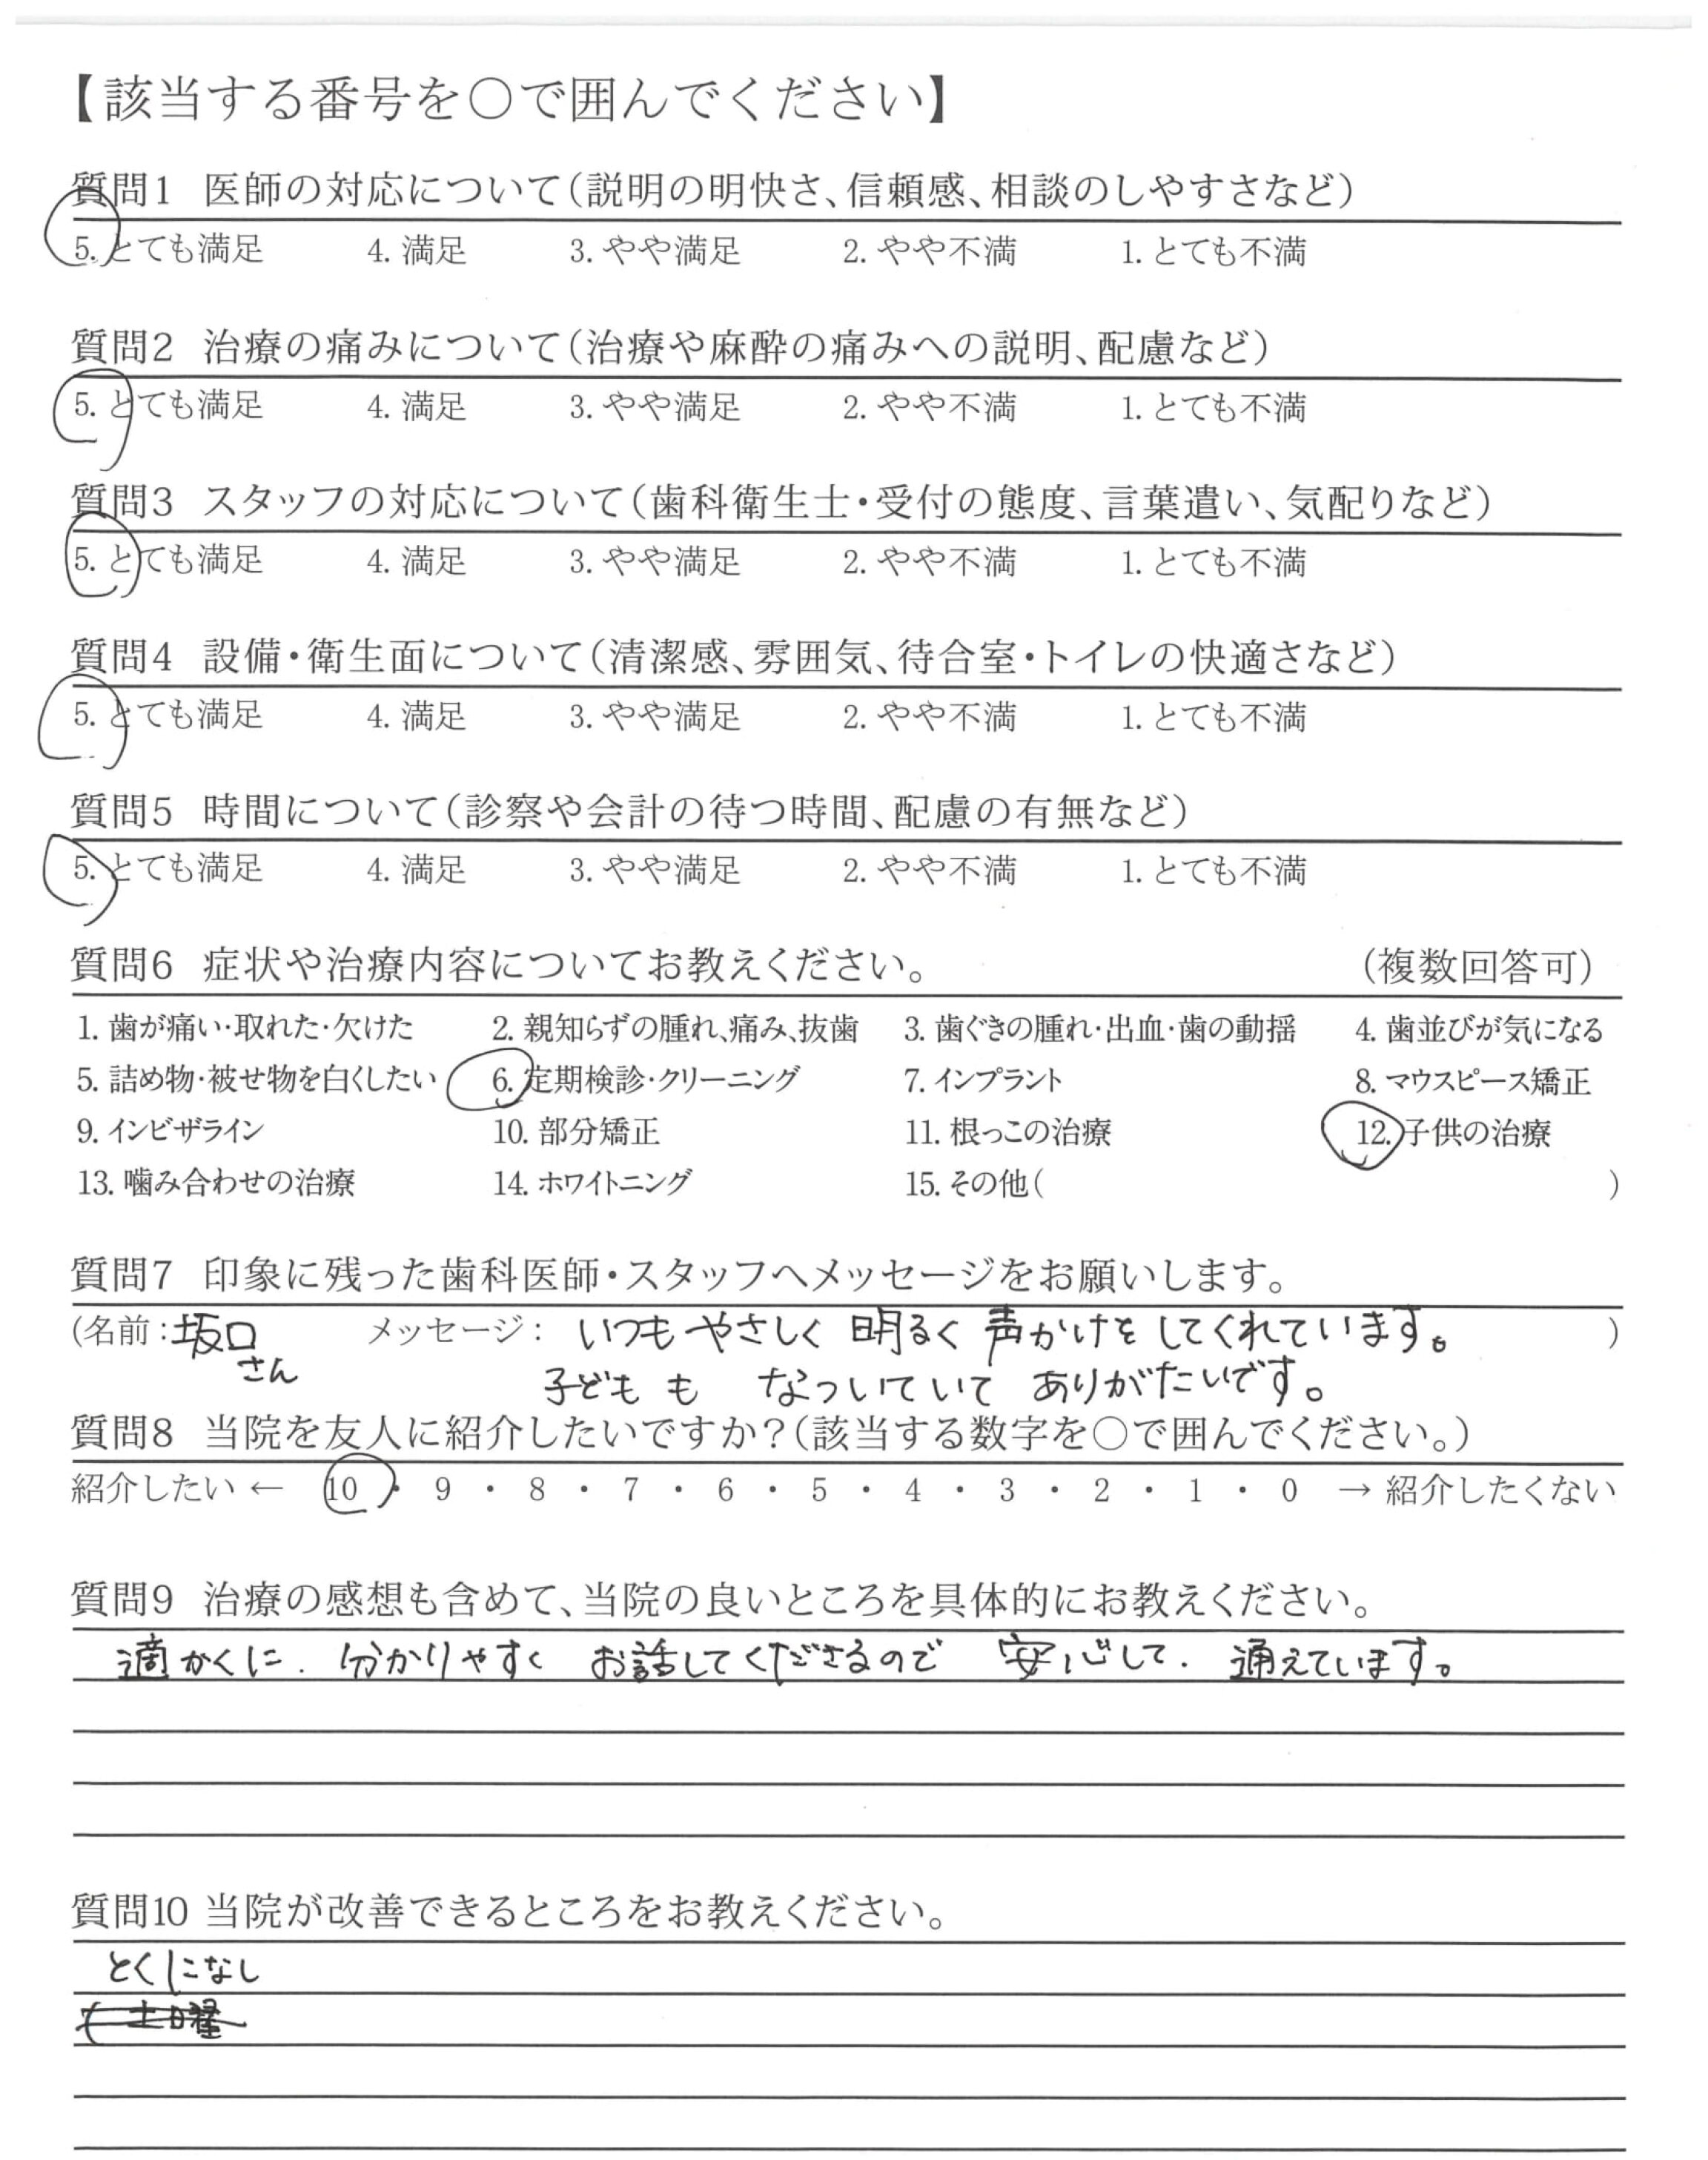 【該当する番号を〇で囲んでください】
質問1 医師の対応について(説明の明快さ、信頼感、相談のしやすさなど)
5. とても満足 4. 満足 3. やや満足 2. やや不満 1. とても不満
質問2 治療の痛みについて(治療や麻酔の痛みへの説明、配慮など)
5. とても満足 4. 満足 3. やや満足 2. やや不満 1. とても不満
質問3 スタッフの対応について(歯科衛生士・受付の態度、言葉遣い、気配りなど)
5. とても満足 4. 満足 3. やや満足 2. やや不満 1. とても不満
質問4 設備・衛生面について(清潔感、雰囲気、待合室・トイレの快適さなど)
5. とても満足 4. 満足 3. やや満足 2. やや不満 1. とても不満
質問5 時間について(診察や会計の待つ時間、配慮の有無など)
5. とても満足 4. 満足 3. やや満足 2. やや不満 1. とても不満
質問6 症状や治療内容についてお教えください。 (複数回答可)
1. 歯が痛い・取れた・欠けた 2. 親知らずの腫れ、痛み、抜歯 3. 歯ぐきの腫れ・出血・歯の動揺 4. 歯並びが気になる
5. 詰め物・被せ物を白くしたい 6. 定期検診・クリーニング 7. インプラント 8. マウスピース矯正
9. インビザライン 10. 部分矯正 11. 根っこの治療 12. 子供の治療
13. 噛み合わせの治療 14. ホワイトニング 15. その他( )
質問7 印象に残った歯科医師・スタッフへメッセージをお願いします。
(名前：坂口 メッセージ： いつもやさしく 明るく 声かけを してくれています。 )
さん 子どもも なついていて ありがたいです。
質問8 当院を友人に紹介したいですか？(該当する数字を〇で囲んでください。)
紹介したい ← 10 ・ 9 ・ 8 ・ 7 ・ 6 ・ 5 ・ 4 ・ 3 ・ 2 ・ 1 ・ 0 → 紹介したくない
質問9 治療の感想も含めて、当院の良いところを具体的にお教えください。
適かくに. 分かりやすく お話してくださるので 安心して. 通えています。
質問10 当院が改善できるところをお教えください。
とくになし
( 土日曜